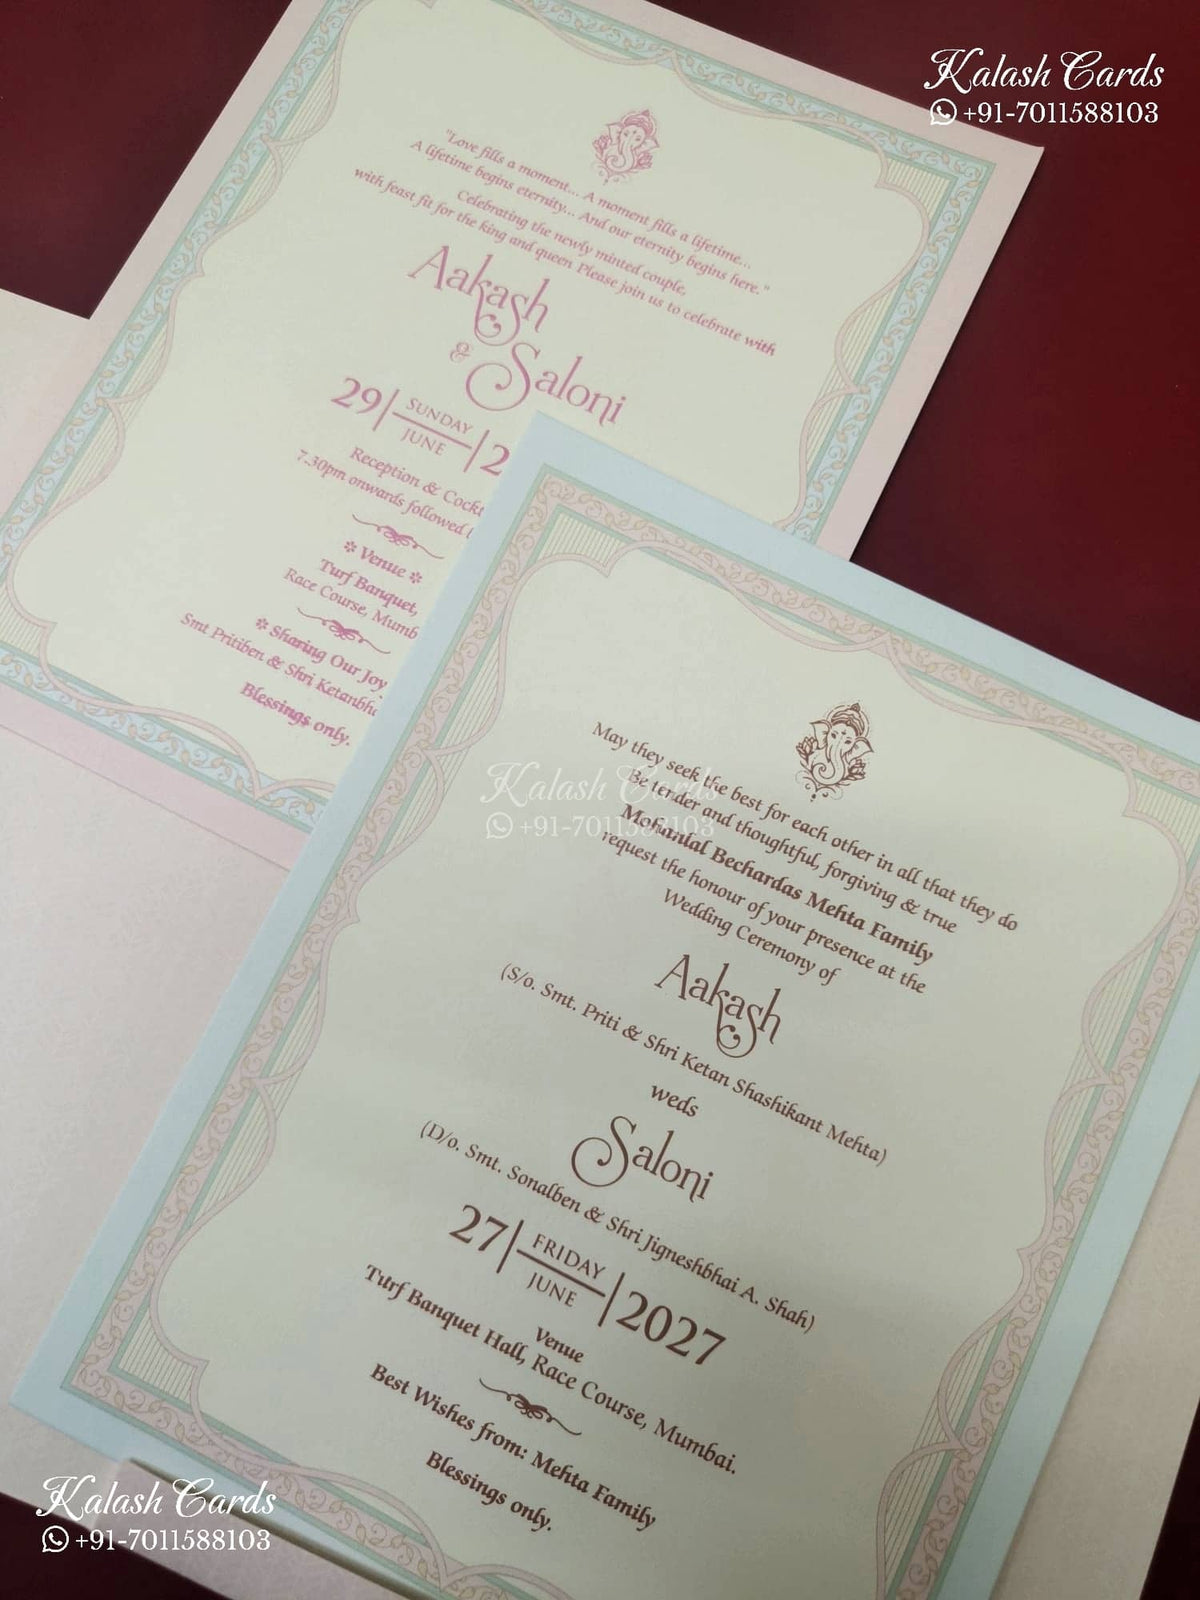 Kalash Cards
+91-7011588103
"Love fills a moment... A moment fills a lifetime...
A lifetime begins eternity... And our eternity begins here."
Celebrating the newly minted couple,
with feast fit for the king and queen Please join us to celebrate with
Aakash
&
Saloni
29
SUNDAY
JUNE
2
Reception &
7.30pm onwards followed
Venue
Turf Banquet,
Race Course,
Sharing Our Joy
Smt Pritiben & Shri
Blessings only.
May they seek the best for each other in all that they do
Be tender and thoughtful, forgiving & true
Mohanlal Bechardas Mehta Family
request the honour of your presence at the
Wedding Ceremony of
Aakash
(S/o. Smt. Priti & Shri Ketan Shashikant Mehta)
weds
Saloni
(D/o. Smt. Sonalben & Shri Jigneshbhai A. Shah)
27
FRIDAY
JUNE
2027
Venue
Turf Banquet Hall, Race Course, Mumbai.
Best Wishes from: Mehta Family
Blessings only.
Kalash Cards
+91-7011588103
Kalash Cards
+91-7011588103